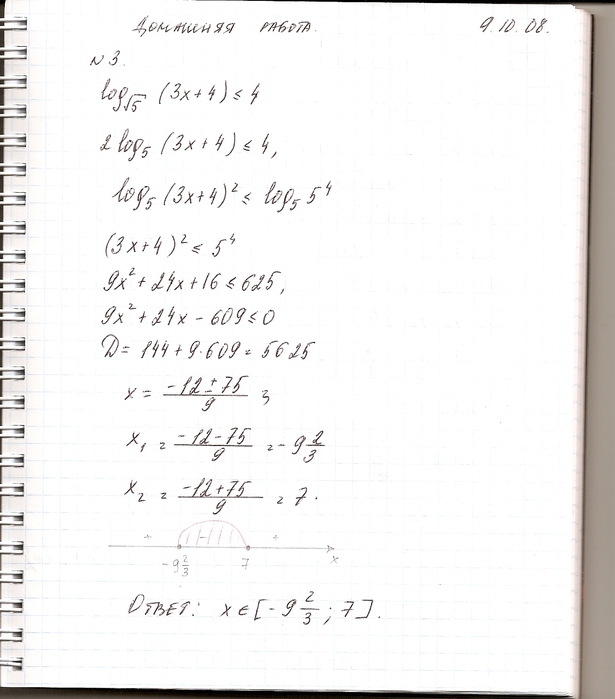 Домашняя работа. 9.10.08.
N3.
log_√5 (3x+4) ≤ 4
2 log₅ (3x+4) ≤ 4,
log₅ (3x+4)² ≤ log₅ 5⁴
(3x+4)² ≤ 5⁴
9x² + 24x + 16 ≤ 625,
9x² + 24x - 609 ≤ 0
D = 144 + 9·609 = 5625
x = (-12 ± 75)/9 ;
x₁ = (-12-75)/9 = -9 2/3
x₂ = (-12+75)/9 = 7.
+ - +
-9 2/3 7 x
Ответ: x ∈ [-9 2/3 ; 7].